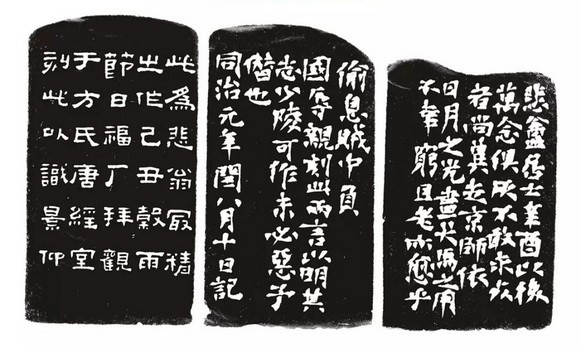 悲盦居士辛酉以後
萬念俱灰不敢求死
者尚冀走京師依
日月之光盡犬馬之用
不幸窮且老亦愈乎
偷息賊中負
國辱親刻此兩言以明其
志少陵可作未必惡予
僭也
同治元年閏八月十日記
此為悲翁最精
之作己丑穀雨
節日福厂拜觀
于方氏唐經室
刻此以識景仰